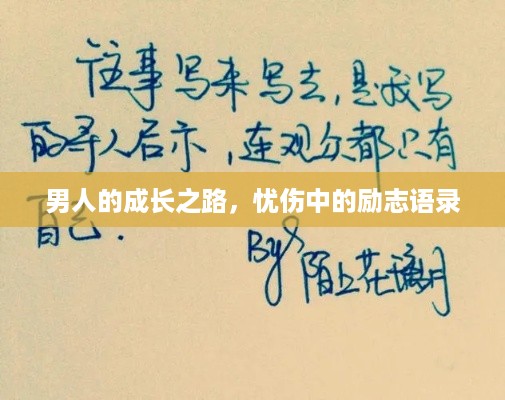 往事写来写去,是我写
的寻人启示,连观众都只有
男人的成长之路，忧伤中的励志语录
自己.
By
陌上花璃月